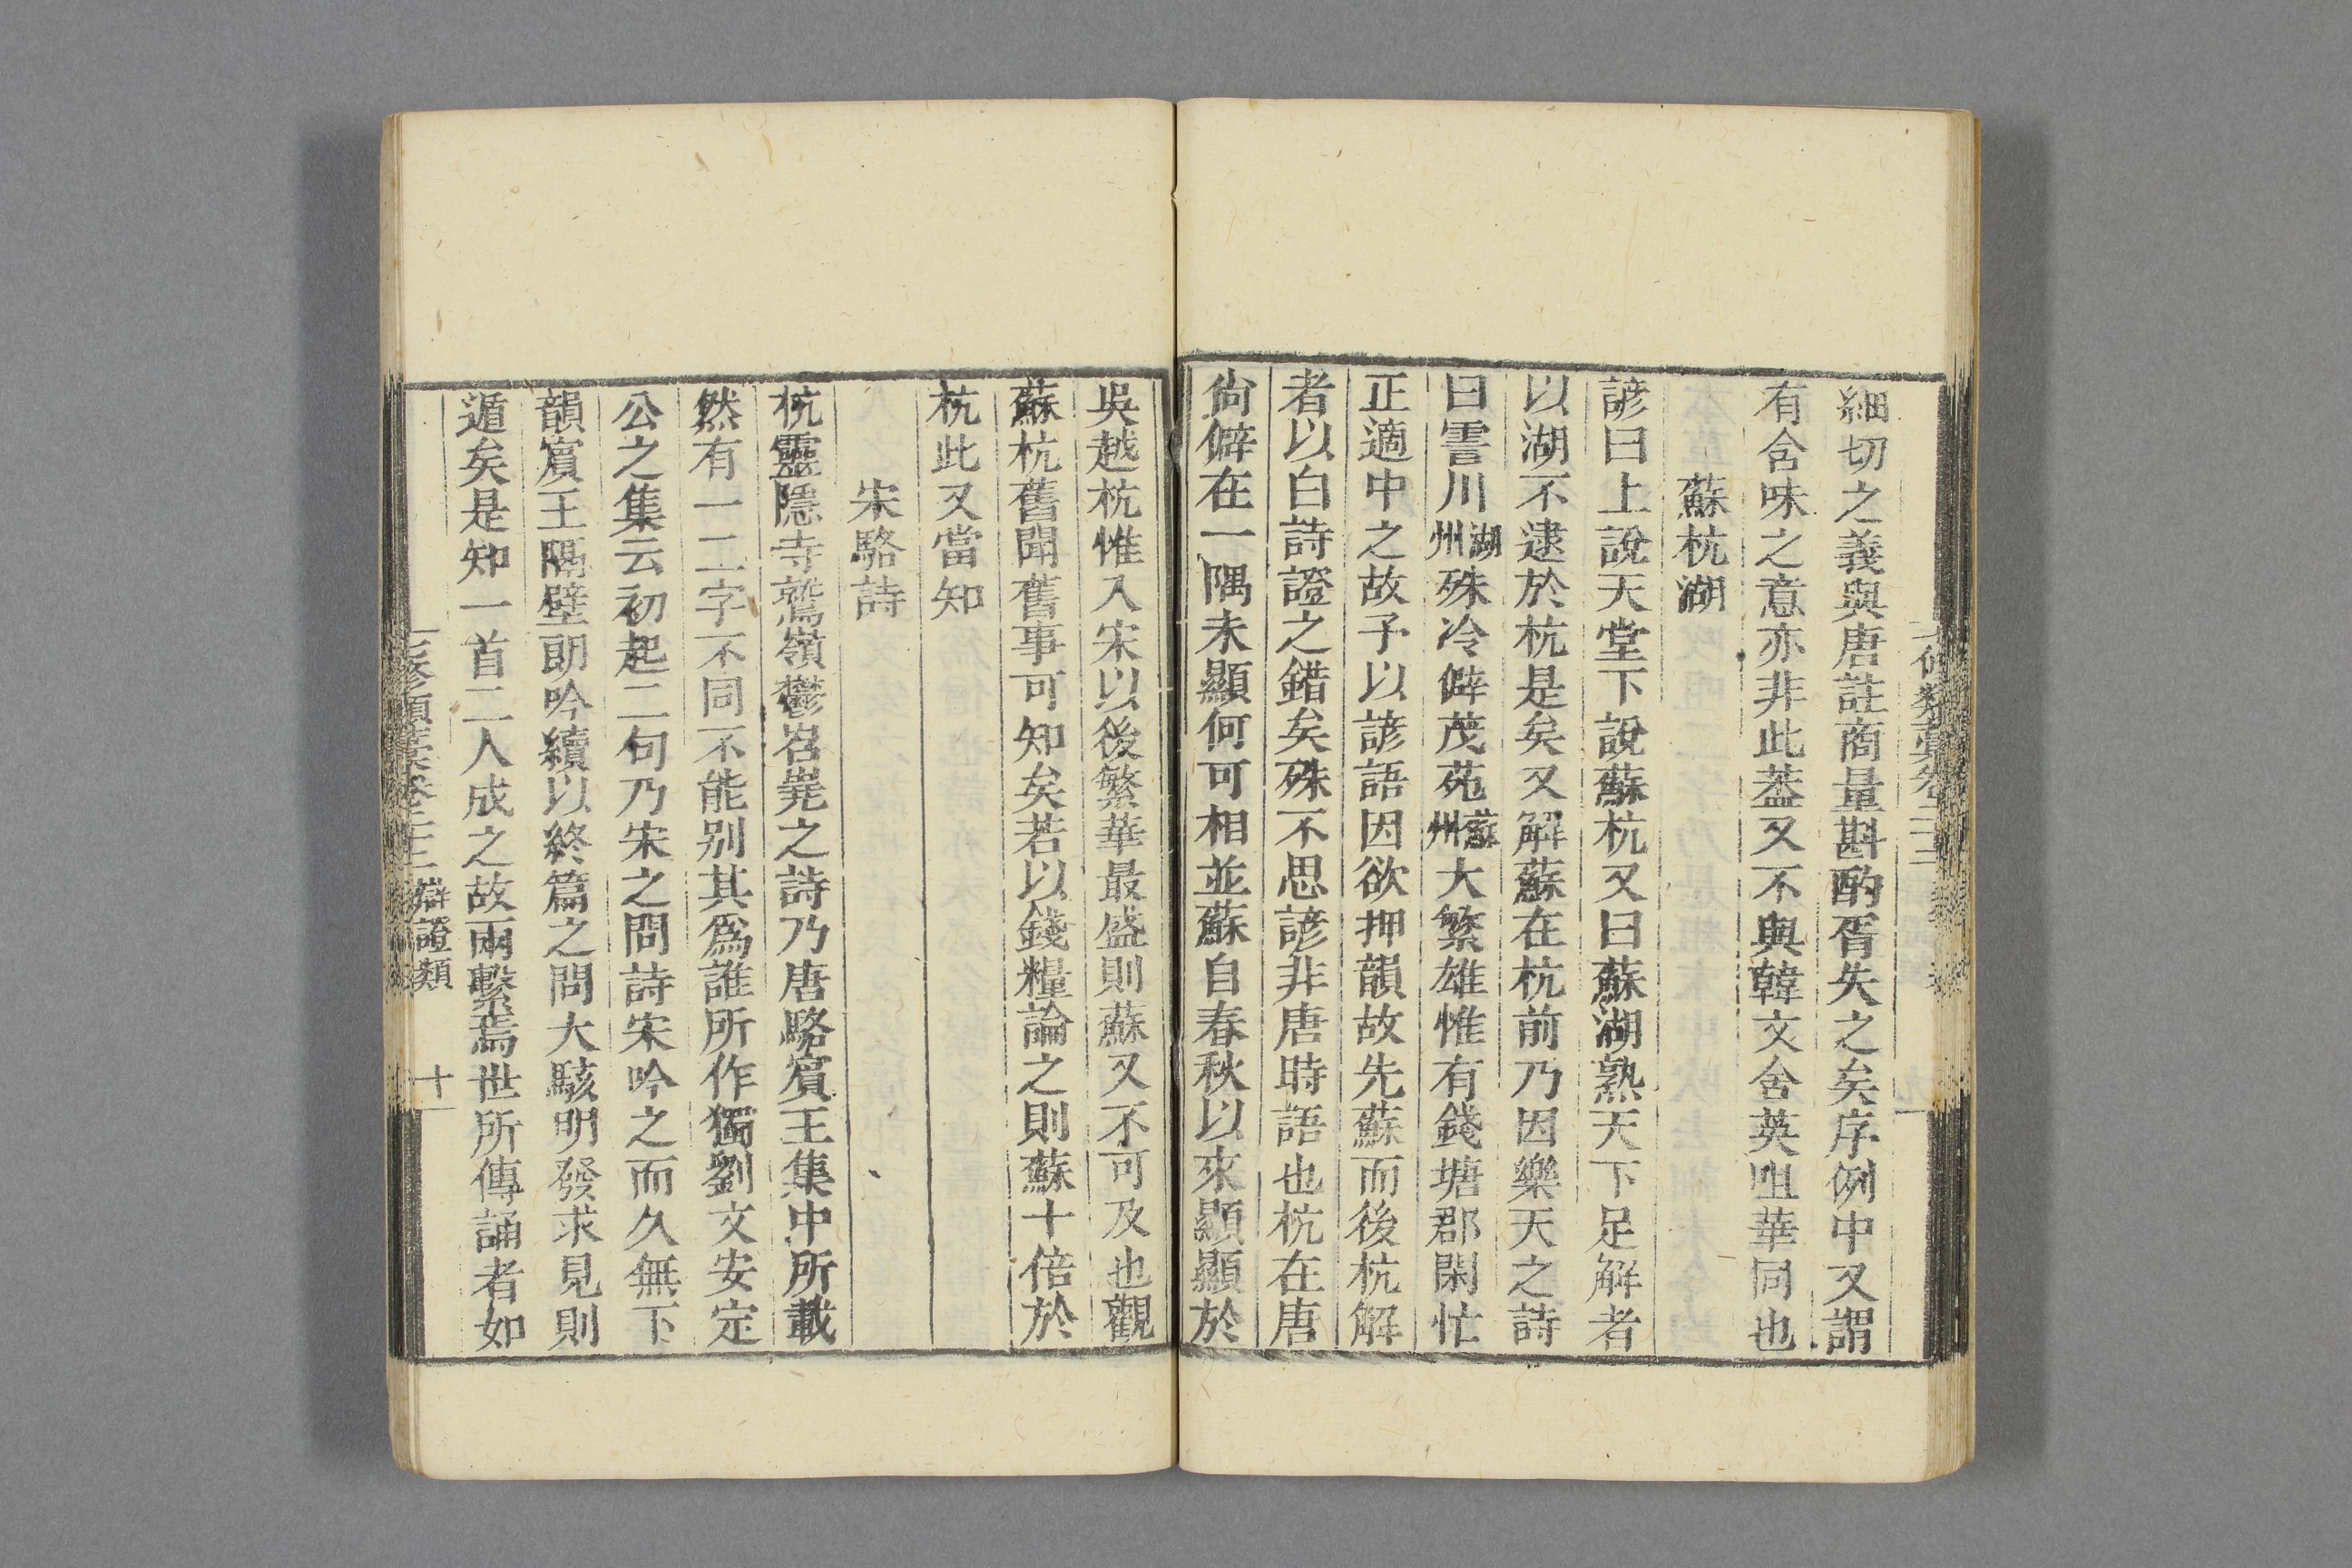 細切之義與唐註商量斟酌胥失之矣序例中又謂
有含味之意亦非此葢又不與韓文含英咀華同也
蘇杭湖
諺曰上說天堂下說蘇杭又曰蘇湖熟天下足解者
以湖不逮於杭是矣又解蘇在杭前乃因樂天之詩
曰霅川湖州殊冷僻茂苑蘇州大繁雄惟有錢塘郡閑忙
正適中之故予以諺語因欲押韻故先蘇而後杭解
者以白詩證之錯矣殊不思諺非唐時語也杭在唐
尙僻在一隅未顯何可相並蘇自春秋以來顯顯於
吳越杭惟入宋以後繁華最盛則蘇又不可及也觀
蘇杭舊聞舊事可知矣若以錢糧論之則蘇十倍於
杭此又當知
宋駱詩
杭靈隱寺鷲嶺鬱岧嶤之詩乃唐駱賓王集中所載
然有一二字不同不能别其爲誰所作獨劉文安定
公之集云初起二句乃宋之問詩宋吟之而久無下
韻賓王隔壁朗吟續以終篇之問大駭明發求見則
遁矣是知一首二人成之故兩繫焉世所傳誦者如
七修類藁卷二十二 辯證類 十